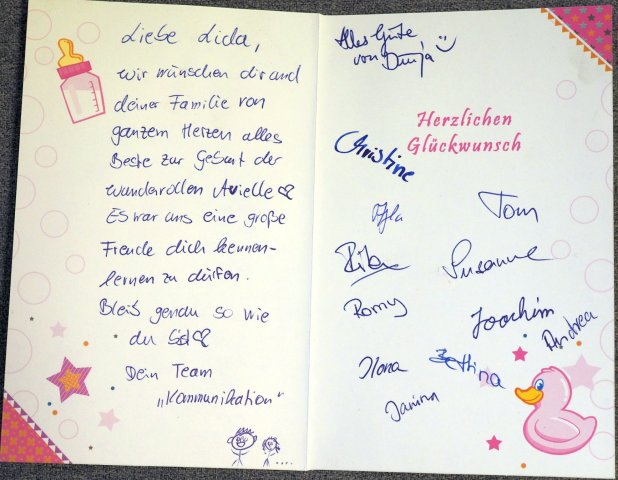 Liebe Lida,
wir wünschen dir und
deiner Familie von
ganzem Herzen alles
Beste zur Geburt der
wundervollen Arielle
Es war uns eine große
Freude dich kennen-
lernen zu dürfen.
Bleib genau so wie
du bist
Dein Team
„Kommunikation"
Alles Gute
von Dunja
Herzlichen
Glückwunsch
Christine
Tom
Susanne
Romy
Joachim
Andrea
Ilona
Bettina
Janina